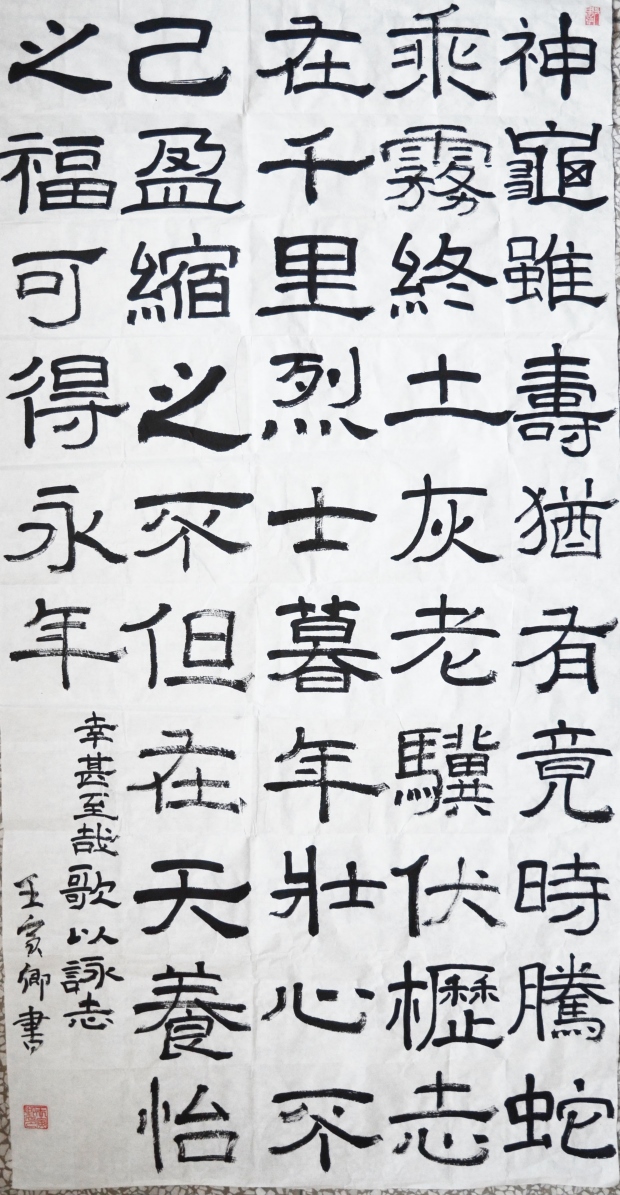 神龜雖壽猶有竟時騰蛇
乘霧終土灰老驥伏櫪志
在千里烈士暮年壯心不
己盈縮之不但在天養怡
之福可得永年
幸甚至哉歌以詠志
王卿書